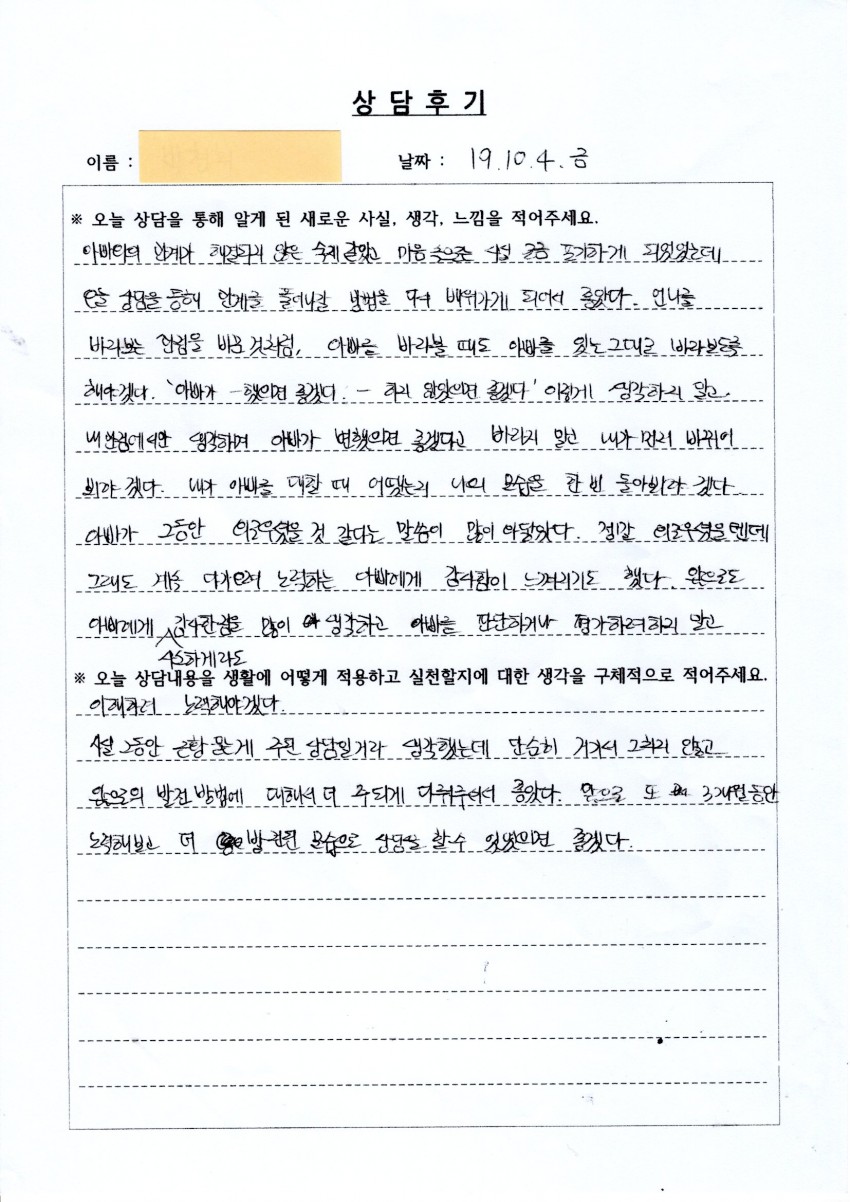 상담후기
이름 : 날짜 : 19.10.4.금
※ 오늘 상담을 통해 알게 된 새로운 사실, 생각, 느낌을 적어주세요.
아빠와의 관계가 해결되지 않은 숙제 같았고 마음 속으론 사실 조금 포기하게 되었었는데
오늘 상담을 통해 관계를 풀어나갈 방법을 다시 배워가게 되어서 좋았다. 언니를
바라보는 관점을 바꾼 것처럼, 아빠를 바라볼 때도 아빠를 있는 그대로 바라보도록
해야겠다. '아빠가 -했으면 좋겠다. - 하지 않았으면 좋겠다' 이렇게 생각하지 말고
내 관점에서만 생각하며 아빠가 변했으면 좋겠다고 바라지 말고 내가 먼저 바뀌어
봐야겠다. 내가 아빠를 대할 때 어땠는지 나의 모습을 한 번 돌아봐야 겠다.
아빠가 그동안 외로우셨을 것 같다는 말씀이 많이 와닿았다. 정말 외로우셨을텐데
그래도 계속 다가오려 노력하는 아빠에게 감사함이 느껴지기도 했다. 앞으로도
아빠에게 감사한점을 많이 생각하고 아빠를 판단하거나 평가하려하지 말고
사소하게라도
※ 오늘 상담내용을 생활에 어떻게 적용하고 실천할지에 대한 생각을 구체적으로 적어주세요.
이해하려 노력해야겠다.
사실 그동안 근황 묻는게 주된 상담일거라 생각했는데 단순히 거기서 그치지 않고
앞으로의 발전 방법에 대해서 더 주되게 다뤄주셔서 좋았다. 앞으로 또 3개월동안
노력해보고 더 발전된 모습으로 상담을 할 수 있었으면 좋겠다.